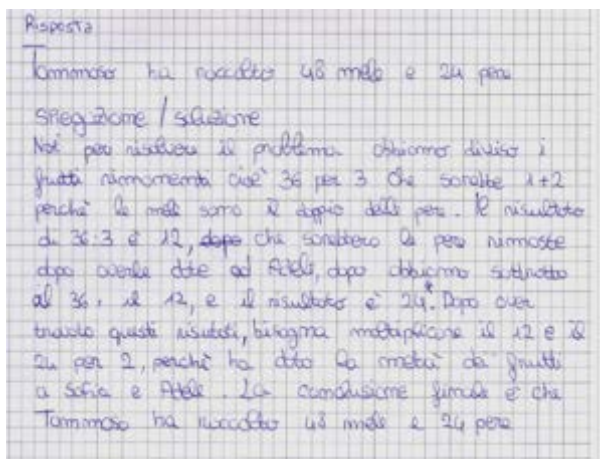 Risposta
Tommaso ha raccolto 48 mele e 24 pere
spiegazione / soluzione
Noi per risolvere il problema abbiamo diviso i
frutti rimanenti cioè 36 per 3 che sarebbe 1+2
perché le mele sono il doppio delle pere. Il risultato
di 36:3 è 12, dopo che sarebbero le pere rimaste
dopo averle date ad Adele, dopo abbiamo sottratto
al 36, il 12, e il risultato è 24*. Dopo aver
trovato questi risultati, bisogna moltiplicare il 12 e il
24 per 2, perché ha dato la metà dei frutti
a Sofia e Adele. La conclusione finale è che
Tommaso ha raccolto 48 mele e 24 pere